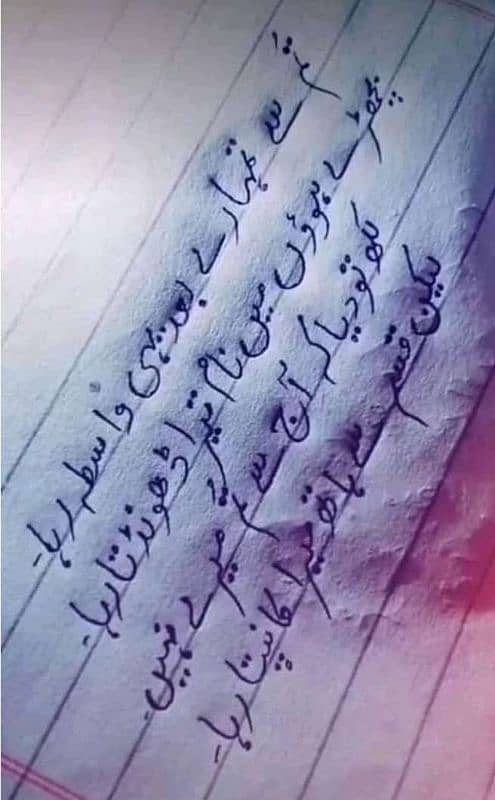 تم سے تمہارے بعد بھی واسطہ رہا۔
بچھڑے ہوؤں میں نام تیرا ڈھونڈتا رہا۔
لکھ تو دیا کہ آج سے تم میرے نہیں۔
لیکن قسم سے ہاتھ میرا کانپتا رہا۔